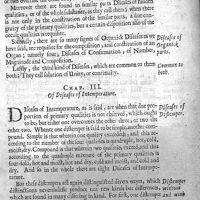 Moreover there are found in similar parts Diseases of hidden
qualities, or of the whole substance, as they call them: which there
is not only in the constitution of the similar parts, a due con-
gruity of the primary qualities, but also of the occult qualities
is requisite.
Secondly, there are so many signes of Organick Diseases as we
have said, are requisite for the composition, and constitution of an
Organ; namely four, Diseases of Conformation, of Number,
Magnitude and Composition.
Lastly, the third kind of Diseases, which are common to them
both; They call solution of Unity, or continuity.
Diseases of
Organick
parts.
Common to
both.
CHAP. III.
Of Diseases of Intemperature.
Diseases of Intemperature, as is said, are when that due pro-
portion of primary qualities is not observed, which ought
to be, but either one overcomes the other three, or two the
other two. Whence one distemper is said to be simple, another com-
pound. Simple is that wherein one quality exceeded; and this ac-
cording to the number of the four qualities is quadruple, too hot,
cold, moist, dry. Compound is that wherein two qualities exceed; and this
according to the quadruple mixture of the primary qualities is
four fold, hot and moist, hot and dry, cold and moist, cold and
dry. And so in the whole there are eight Diseases of Intempe-
rature.
But these distempers all again distinguished divers wayes, which
distinctions nevertheless produce not new kinds of distempers,
which are found in many relating to kind. For first, one distemper
Diseases of
Distemper.
Distempers
without
and with